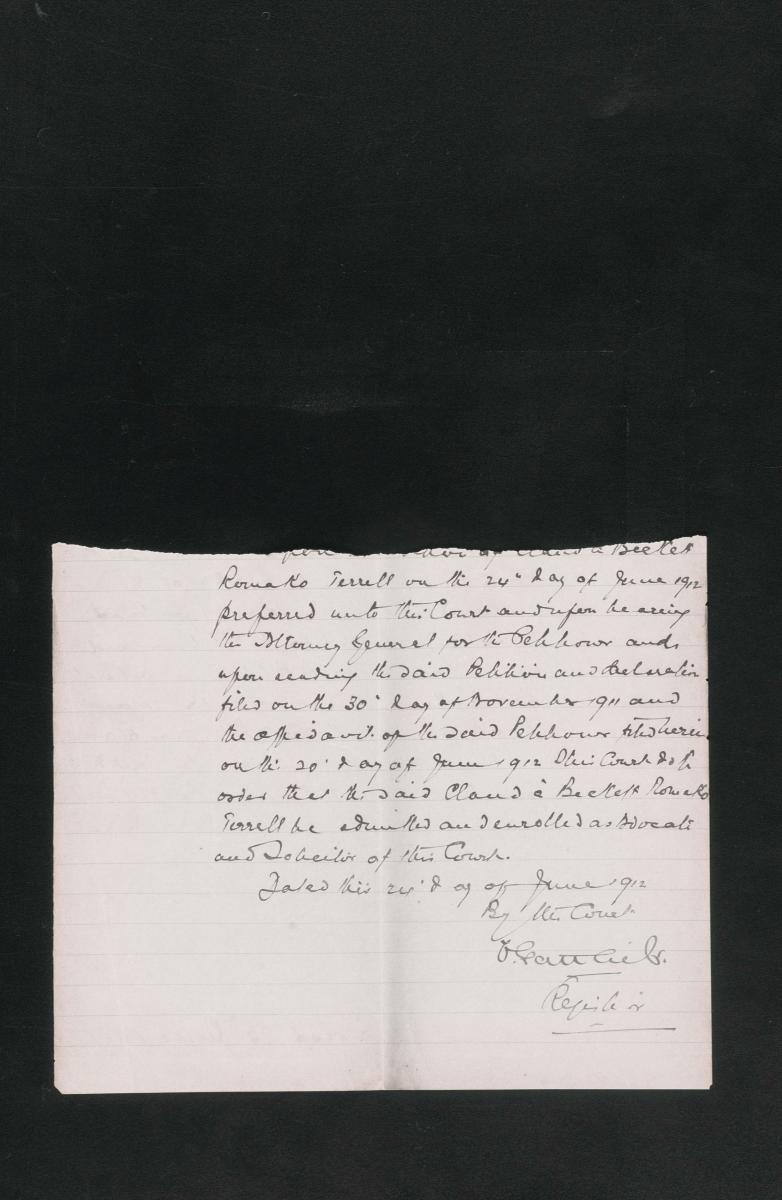 upon of Claud à Beckett
Romako Terrell on the 24" day of June 1912
preferred unto this Court and upon hearing
the Attorney General for the Petitioner and
upon reading the said Petition and declaration
filed on the 30' day of November 1911 and
the affidavit of the said Petitioner filed herein
on the 20' day of June 1912 This Court doth
order that the said Claud à Beckett Romako
Terrell be admitted and enrolled as Advocate
and Solicitor of this Court.
Dated this 24' day of June 1912
By the Court
Registrar